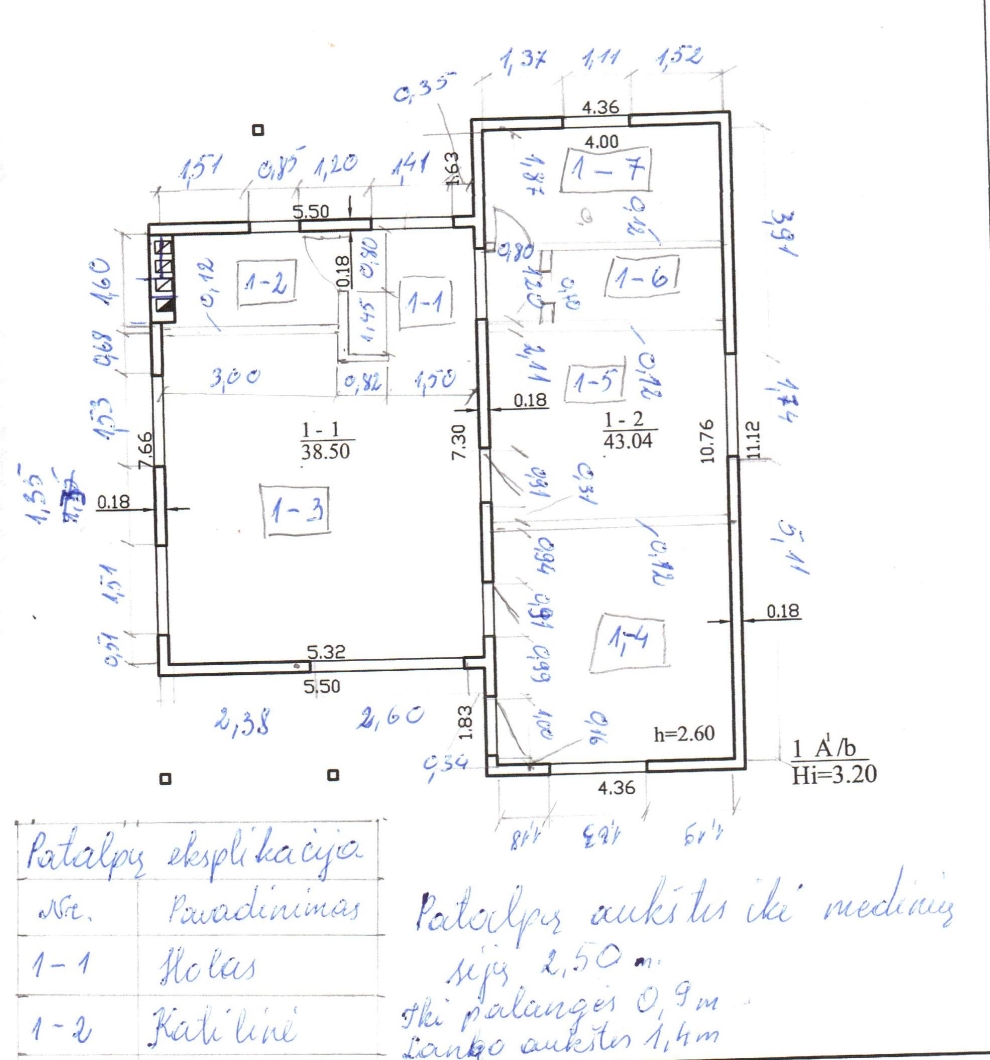 1,37 1,11 1,52
0,35
4.36
4.00
1,51 0,85 1,20 1,41
1.63
1,87
1-7
5.50
0,12
3,91
0,80
1,60
0,12
1-2
0.18
0,80
1-1
1,20
0,12
1-6
0,68
1,45
2,11
0,12
3,00 0,82 1,50
1-5
1,74
1,53
7.66
1-1
38.50
7.30
0.18
1-2
43.04
10.76
11.12
1,35
0.18
1-3
0,91
0,31
0,94
0,12
5,11
1,51
0,91
0.18
0,51
5.32
0,99
1-4
5.50
2,38 2,60
1.83
1,00
0,16
h=2.60
0,34
1 A¹/b
Hi=3.20
4.36
1,18 1,83 1,19
Patalpų eksplikacija
Nr. Pavadinimas
1-1 Holas
1-2 Katilinė
Patalpų aukštis iki medinių
sijų 2,50 m.
Iki palangės 0,9 m
Lango aukštis 1,4 m